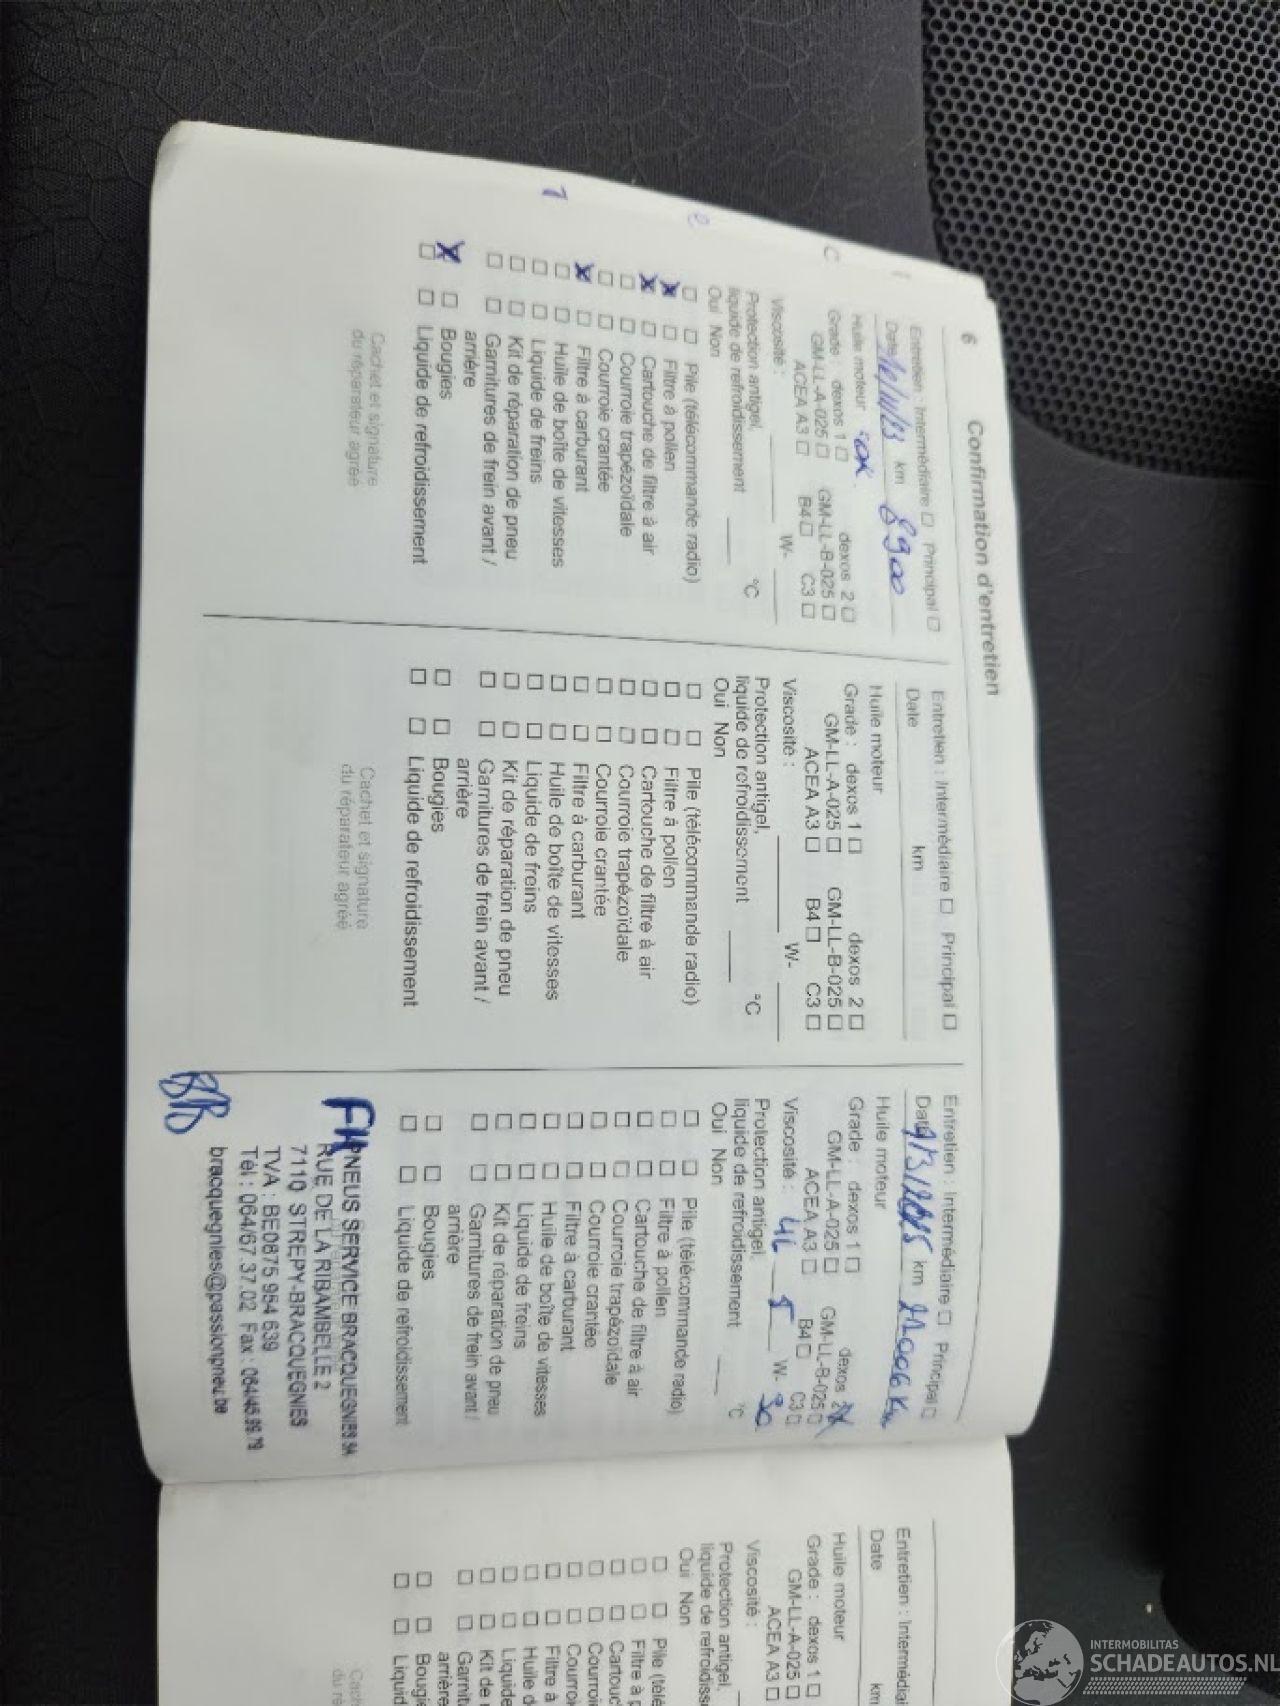 6
Confirmation d'entretien
Entretien : Intermédiaire ☐ Principal ☐
Date km 8900
Huile moteur
Grade : dexos 1 ☐ dexos 2 ☐
GM-LL-A-025 ☐ GM-LL-B-025 ☐
ACEA A3 ☐ B4 ☐ C3 ☐
Viscosité : W-
Protection antigel,
liquide de refroidissement °C
Oui Non
☐ ☐ Pile (télécommande radio)
X ☐ Filtre à pollen
X ☐ Cartouche de filtre à air
☐ ☐ Courroie trapézoïdale
☐ ☐ Courroie crantée
X ☐ Filtre à carburant
☐ ☐ Huile de boîte de vitesses
☐ ☐ Liquide de freins
☐ ☐ Kit de réparation de pneu
☐ ☐ Garnitures de frein avant /
arrière
X ☐ Bougies
☐ ☐ Liquide de refroidissement
Cachet et signature
du réparateur agréé
Entretien : Intermédiaire ☐ Principal ☐
Date km
Huile moteur
Grade : dexos 1 ☐ dexos 2 ☐
GM-LL-A-025 ☐ GM-LL-B-025 ☐
ACEA A3 ☐ B4 ☐ C3 ☐
Viscosité : W-
Protection antigel,
liquide de refroidissement °C
Oui Non
☐ ☐ Pile (télécommande radio)
☐ ☐ Filtre à pollen
☐ ☐ Cartouche de filtre à air
☐ ☐ Courroie trapézoïdale
☐ ☐ Courroie crantée
☐ ☐ Filtre à carburant
☐ ☐ Huile de boîte de vitesses
☐ ☐ Liquide de freins
☐ ☐ Kit de réparation de pneu
☐ ☐ Garnitures de frein avant /
arrière
☐ ☐ Bougies
☐ ☐ Liquide de refroidissement
Cachet et signature
du réparateur agréé
Entretien : Intermédiaire ☐ Principal ☐
Date km
Huile moteur
Grade : dexos 1 ☐ dexos 2 X
GM-LL-A-025 ☐ GM-LL-B-025 ☐
ACEA A3 ☐ B4 ☐ C3 ☐
Viscosité : 4L 5 W- 30
Protection antigel,
liquide de refroidissement °C
Oui Non
☐ ☐ Pile (télécommande radio)
☐ ☐ Filtre à pollen
☐ ☐ Cartouche de filtre à air
☐ ☐ Courroie trapézoïdale
☐ ☐ Courroie crantée
☐ ☐ Filtre à carburant
☐ ☐ Huile de boîte de vitesses
☐ ☐ Liquide de freins
☐ ☐ Kit de réparation de pneu
☐ ☐ Garnitures de frein avant /
arrière
☐ ☐ Bougies
☐ ☐ Liquide de refroidissement
PNEUS SERVICE BRACQUEGNIES SA
RUE DE LA RIBAMBELLE 2
7110 STREPY-BRACQUEGNIES
TVA : BE0875 954 639
Tél : 064/67.37.02 Fax : 064/45.99.79
bracquegnies@passionpneu.be
Entretien : Intermédiai
Date km
Huile moteur
Grade : dexos 1 ☐
GM-LL-A-025 ☐
ACEA A3 ☐
Viscosité :
Protection antigel,
liquide de refroidiss
Oui Non
☐ ☐ Pile (télé
☐ ☐ Filtre à p
☐ ☐ Cartouc
☐ ☐ Courroi
☐ ☐ Courroi
☐ ☐ Filtre à
☐ ☐ Huile d
☐ ☐ Liquide
☐ ☐ Kit de
☐ ☐ Garnit
arrière
☐ ☐ Bougi
☐ ☐ Liquid
Cach
du ré
INTERMOBILITAS
SCHADEAUTOS.NL